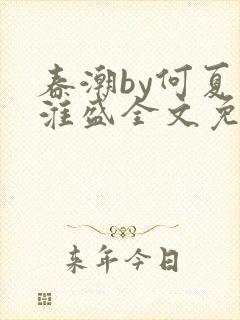 春潮by何夏
淮盛全文免
来年今日